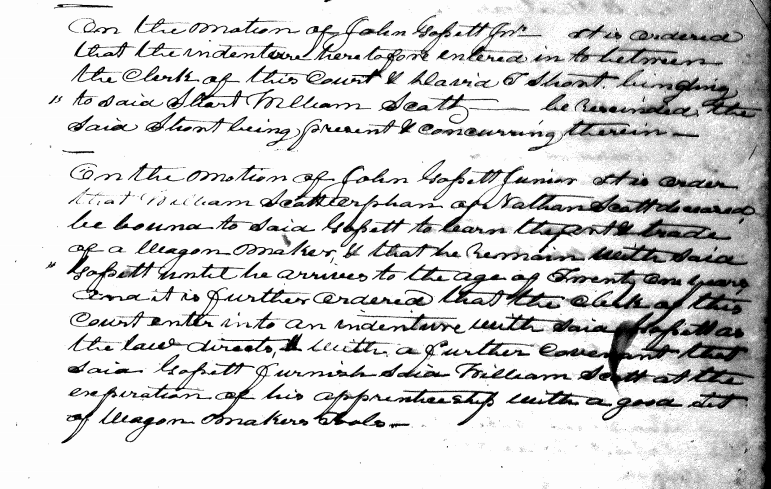 On the motion of John Gossett Jnr. it is ordered
that the indenture heretofore entered in to between
the Clerk of this Court & David T Short. binding
" to said Short William Scott — be Rescinded the
said Short being present & concurring therein —
On the motion of John Gossett Junior it is order
that William Scott orphan of Nathan Scott deceased,
be bound to said Gossett to learn the art & trade
of a Wagon maker, & that he Remain with said
" Gossett until he arrives to the age of Twenty One years
and it is further ordered that the clerk of this
Court enter into an indenture with said Gossett as
the law directs, & with a further Covenant that
said Gossett furnish said William Scott at the
expiration of his apprenticeship with a good set
of Wagon makers Tools —